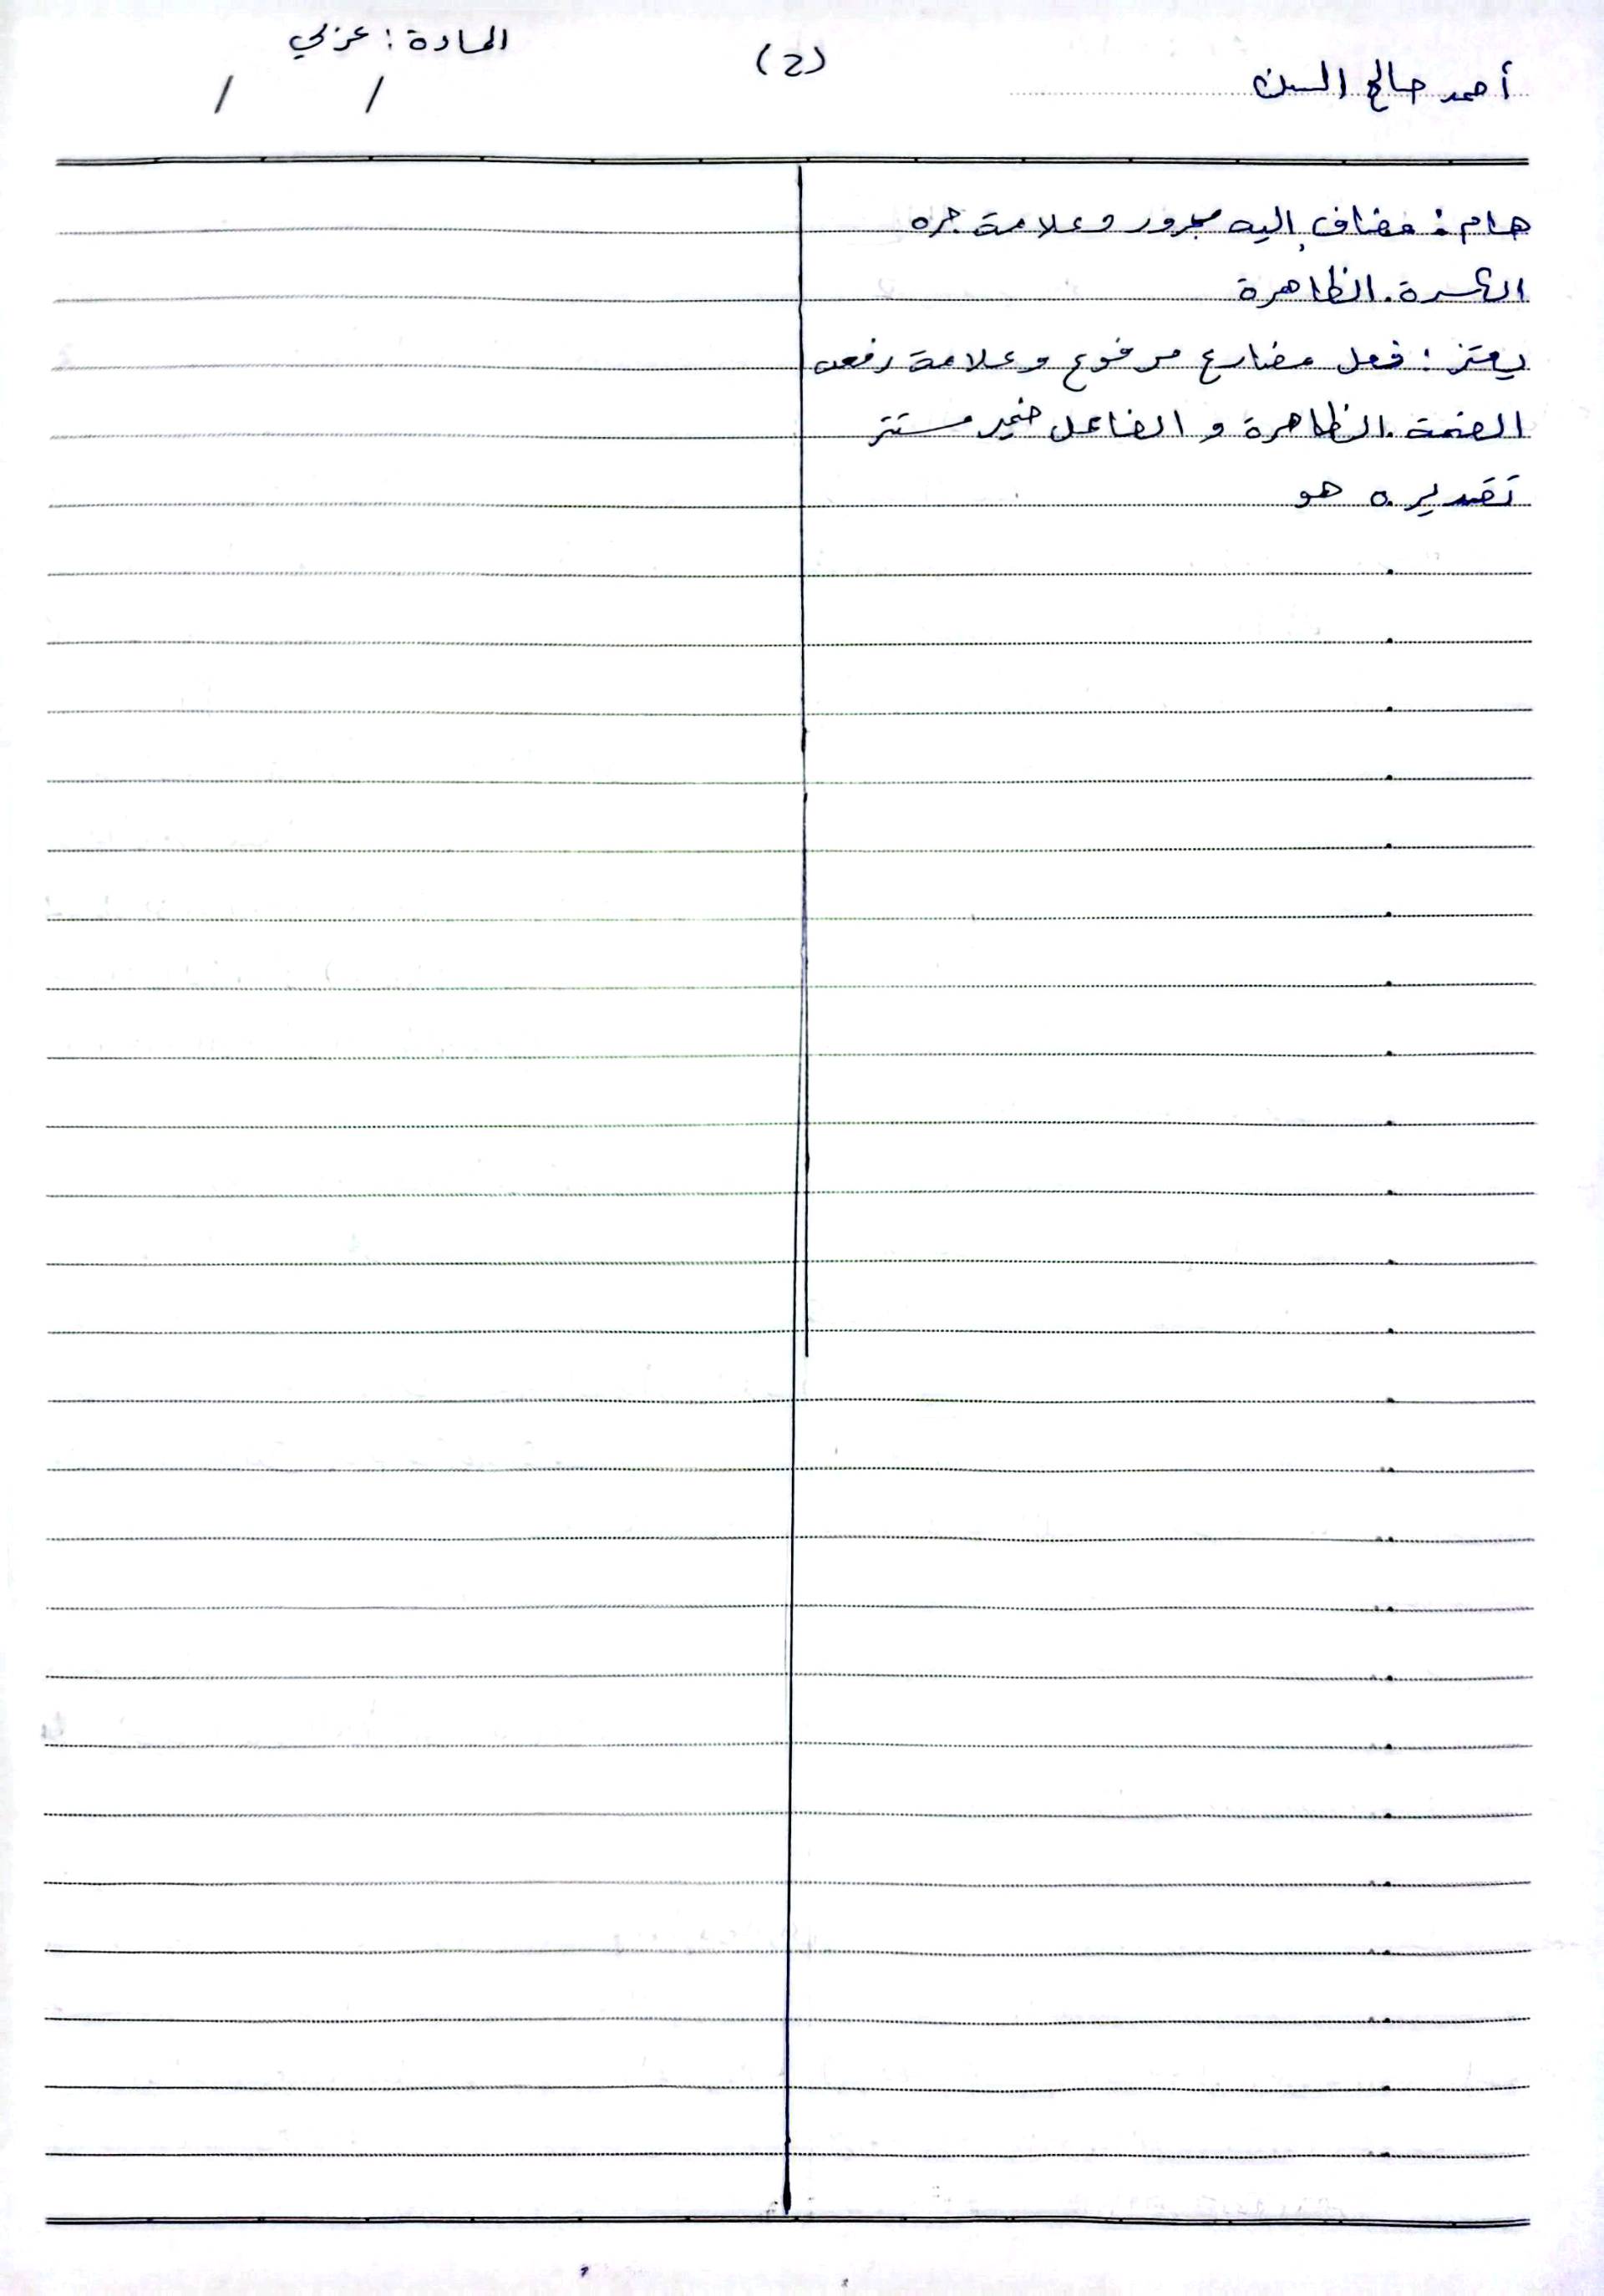 أحمد صالح السن
(2)
المادة: عربي
/ /
هام: مضاف إليه مجرور وعلامة جره
الكسرة الظاهرة
يعتز: فعل مضارع مرفوع وعلامة رفعه
الضمة الظاهرة و الفاعل ضمير مستتر
تقديره هو